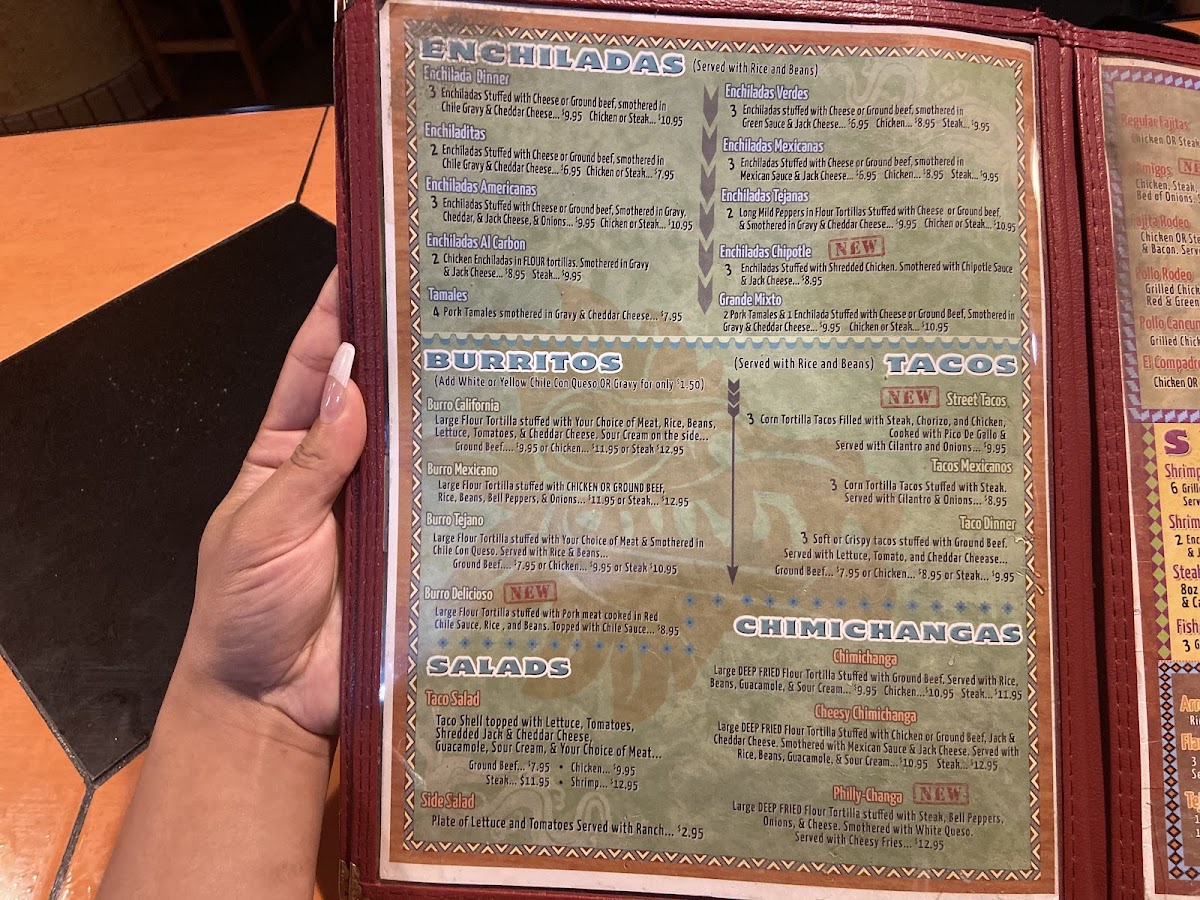 ENCHILADAS (Served with Rice and Beans)
Enchilada Dinner
3 Enchiladas Stuffed with Cheese or Ground beef, smothered in
Chile Gravy & Cheddar Cheese... $9.95 Chicken or Steak... $10.95
Enchiladitas
2 Enchiladas Stuffed with Cheese or Ground beef, smothered in
Chile Gravy & Cheddar Cheese... $6.95 Chicken or Steak... $7.95
Enchiladas Americanas
3 Enchiladas Stuffed with Cheese or Ground beef, Smothered in Gravy,
Cheddar, & Jack Cheese, & Onions... $9.95 Chicken or Steak... $10.95
Enchiladas Al Carbon
2 Chicken Enchiladas in FLOUR tortillas. Smothered in Gravy
& Jack Cheese... $8.95 Steak... $9.95
Tamales
4 Pork Tamales smothered in Gravy & Cheddar Cheese... $7.95
Enchiladas Verdes
3 Enchiladas stuffed with Cheese or Ground beef, smothered in
Green Sauce & Jack Cheese... $6.95 Chicken... $8.95 Steak... $9.95
Enchiladas Mexicanas
3 Enchiladas Stuffed with Cheese or Ground beef, smothered in
Mexican Sauce & Jack Cheese... $6.95 Chicken... $8.95 Steak... $9.95
Enchiladas Tejanas
2 Long Mild Peppers in Flour Tortillas Stuffed with Cheese or Ground beef,
& Smothered in Gravy & Cheddar Cheese... $9.95 Chicken or Steak... $10.95
Enchiladas Chipotle NEW
3 Enchiladas Stuffed with Shredded Chicken. Smothered with Chipotle Sauce
& Jack Cheese... $8.95
Grande Mixto
2 Pork Tamales & 1 Enchilada Stuffed with Cheese or Ground Beef, Smothered in
Gravy & Cheddar Cheese... $9.95 Chicken or Steak... $10.95
BURRITOS
(Add White or Yellow Chile Con Queso OR Gravy for only $1.50)
Burro California
Large Flour Tortilla stuffed with Your Choice of Meat, Rice, Beans,
Lettuce, Tomatoes, & Cheddar Cheese. Sour Cream on the side...
Ground Beef.... $9.95 or Chicken... $11.95 or Steak $12.95
Burro Mexicano
Large Flour Tortilla stuffed with CHICKEN OR GROUND BEEF,
Rice, Beans, Bell Peppers, & Onions... $11.95 or Steak... $12.95
Burro Tejano
Large Flour Tortilla stuffed with Your Choice of Meat & Smothered in
Chile Con Queso. Served with Rice & Beans...
Ground Beef... $7.95 or Chicken... $9.95 or Steak $10.95
Burro Delicioso NEW
Large Flour Tortilla stuffed with Pork meat cooked in Red
Chile Sauce, Rice , and Beans. Topped with Chile Sauce... $8.95
(Served with Rice and Beans) TACOS
NEW Street Tacos
3 Corn Tortilla Tacos Filled with Steak, Chorizo, and Chicken,
Cooked with Pico De Gallo &
Served with Cilantro and Onions... $9.95
Tacos Mexicanos
3 Corn Tortilla Tacos Stuffed with Steak.
Served with Cilantro & Onions... $8.95
Taco Dinner
3 Soft or Crispy tacos stuffed with Ground Beef.
Served with Lettuce, Tomato, and Cheddar Cheease...
Ground Beef... $7.95 or Chicken... $8.95 or Steak... $9.95
SALADS
Taco Salad
Taco Shell topped with Lettuce, Tomatoes,
Shredded Jack & Cheddar Cheese,
Guacamole, Sour Cream, & Your Choice of Meat...
Ground Beef... $7.95 • Chicken... $9.95
Steak... $11.95 • Shrimp... $12.95
Side Salad
Plate of Lettuce and Tomatoes Served with Ranch... $2.95
CHIMICHANGAS
Chimichanga
Large DEEP FRIED Flour Tortilla Stuffed with Ground Beef. Served with Rice,
Beans, Guacamole, & Sour Cream... $9.95 Chicken...$10.95 Steak... $11.95
Cheesy Chimichanga
Large DEEP FRIED Flour Tortilla Stuffed with Chicken or Ground Beef, Jack &
Cheddar Cheese. Smothered with Mexican Sauce & Jack Cheese. Served with
Rice, Beans, Guacamole, & Sour Cream... $10.95 Steak... $12.95
Philly-Changa NEW
Large DEEP FRIED Flour Tortilla stuffed with Steak, Bell Peppers,
Onions, & Cheese. Smothered with White Queso.
Served with Cheesy Fries... $12.95
Regular Fajitas
Chicken OR Steak
Amigos
Chicken, Steak,
Bed of Onions,
Rodeo
Chicken OR
& Bacon.
Pollo Rodeo
Grilled
Red & Green
Pollo
Grilled
El
Chicken OR
S
6
2
Steak
8oz
3